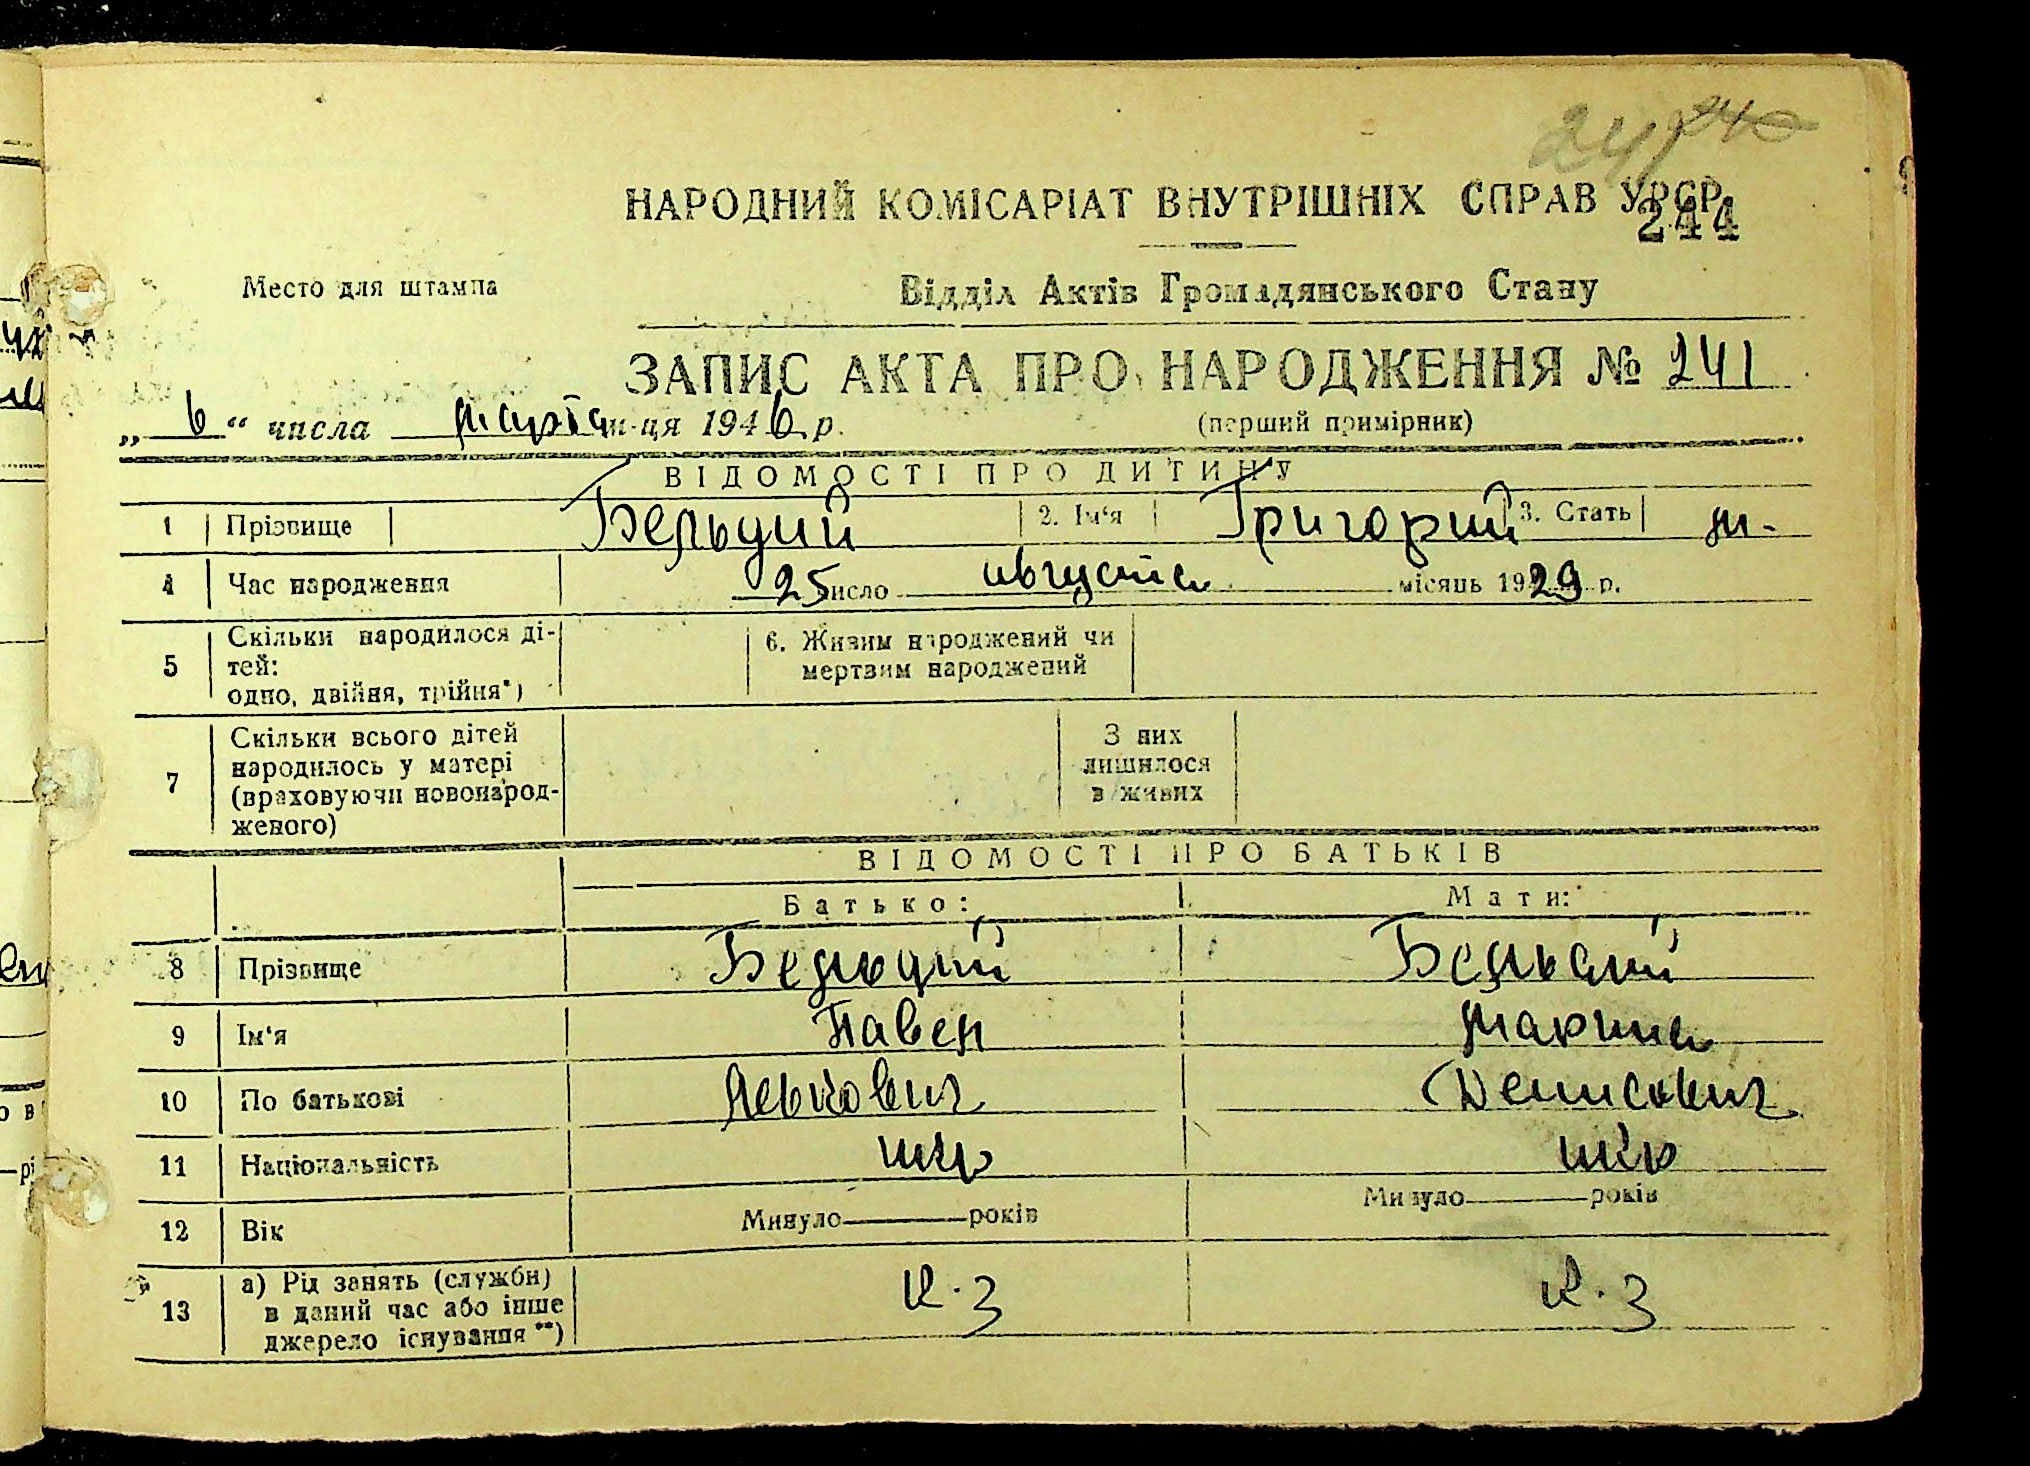 241 240
НАРОДНИЙ КОМІСАРІАТ ВНУТРІШНІХ СПРАВ УРСР
244
Место для штампа
Відділ Актів Громадянського Стану
ЗАПИС АКТА ПРО НАРОДЖЕННЯ № 241
„ 6 “ числа марта м-ця 1946 р.
(перший примірник)
ВІДОМОСТІ ПРО ДИТИНУ
1 Прізвище 2. Ім'я Григорий 3. Стать м-
4 Час народження 25 число августа місяць 1929 р.
5 Скільки народилося ді-
тей:
одно, двійня, трійня*)
6. Живим народжений чи
мертвим народжений
7 Скільки всього дітей
народилось у матері
(враховуючи новонарод-
женого)
З них
лишилося
в живих
ВІДОМОСТІ ПРО БАТЬКІВ
Батько: Мати:
8 Прізвище
9 Ім'я Павел Мария
10 По батькові Левкович Денисович
11 Національність укр укр
12 Вік Минуло років Минуло років
13 а) Рід занять (служби)
в даний час або інше
джерело існування **)
К.З К.З